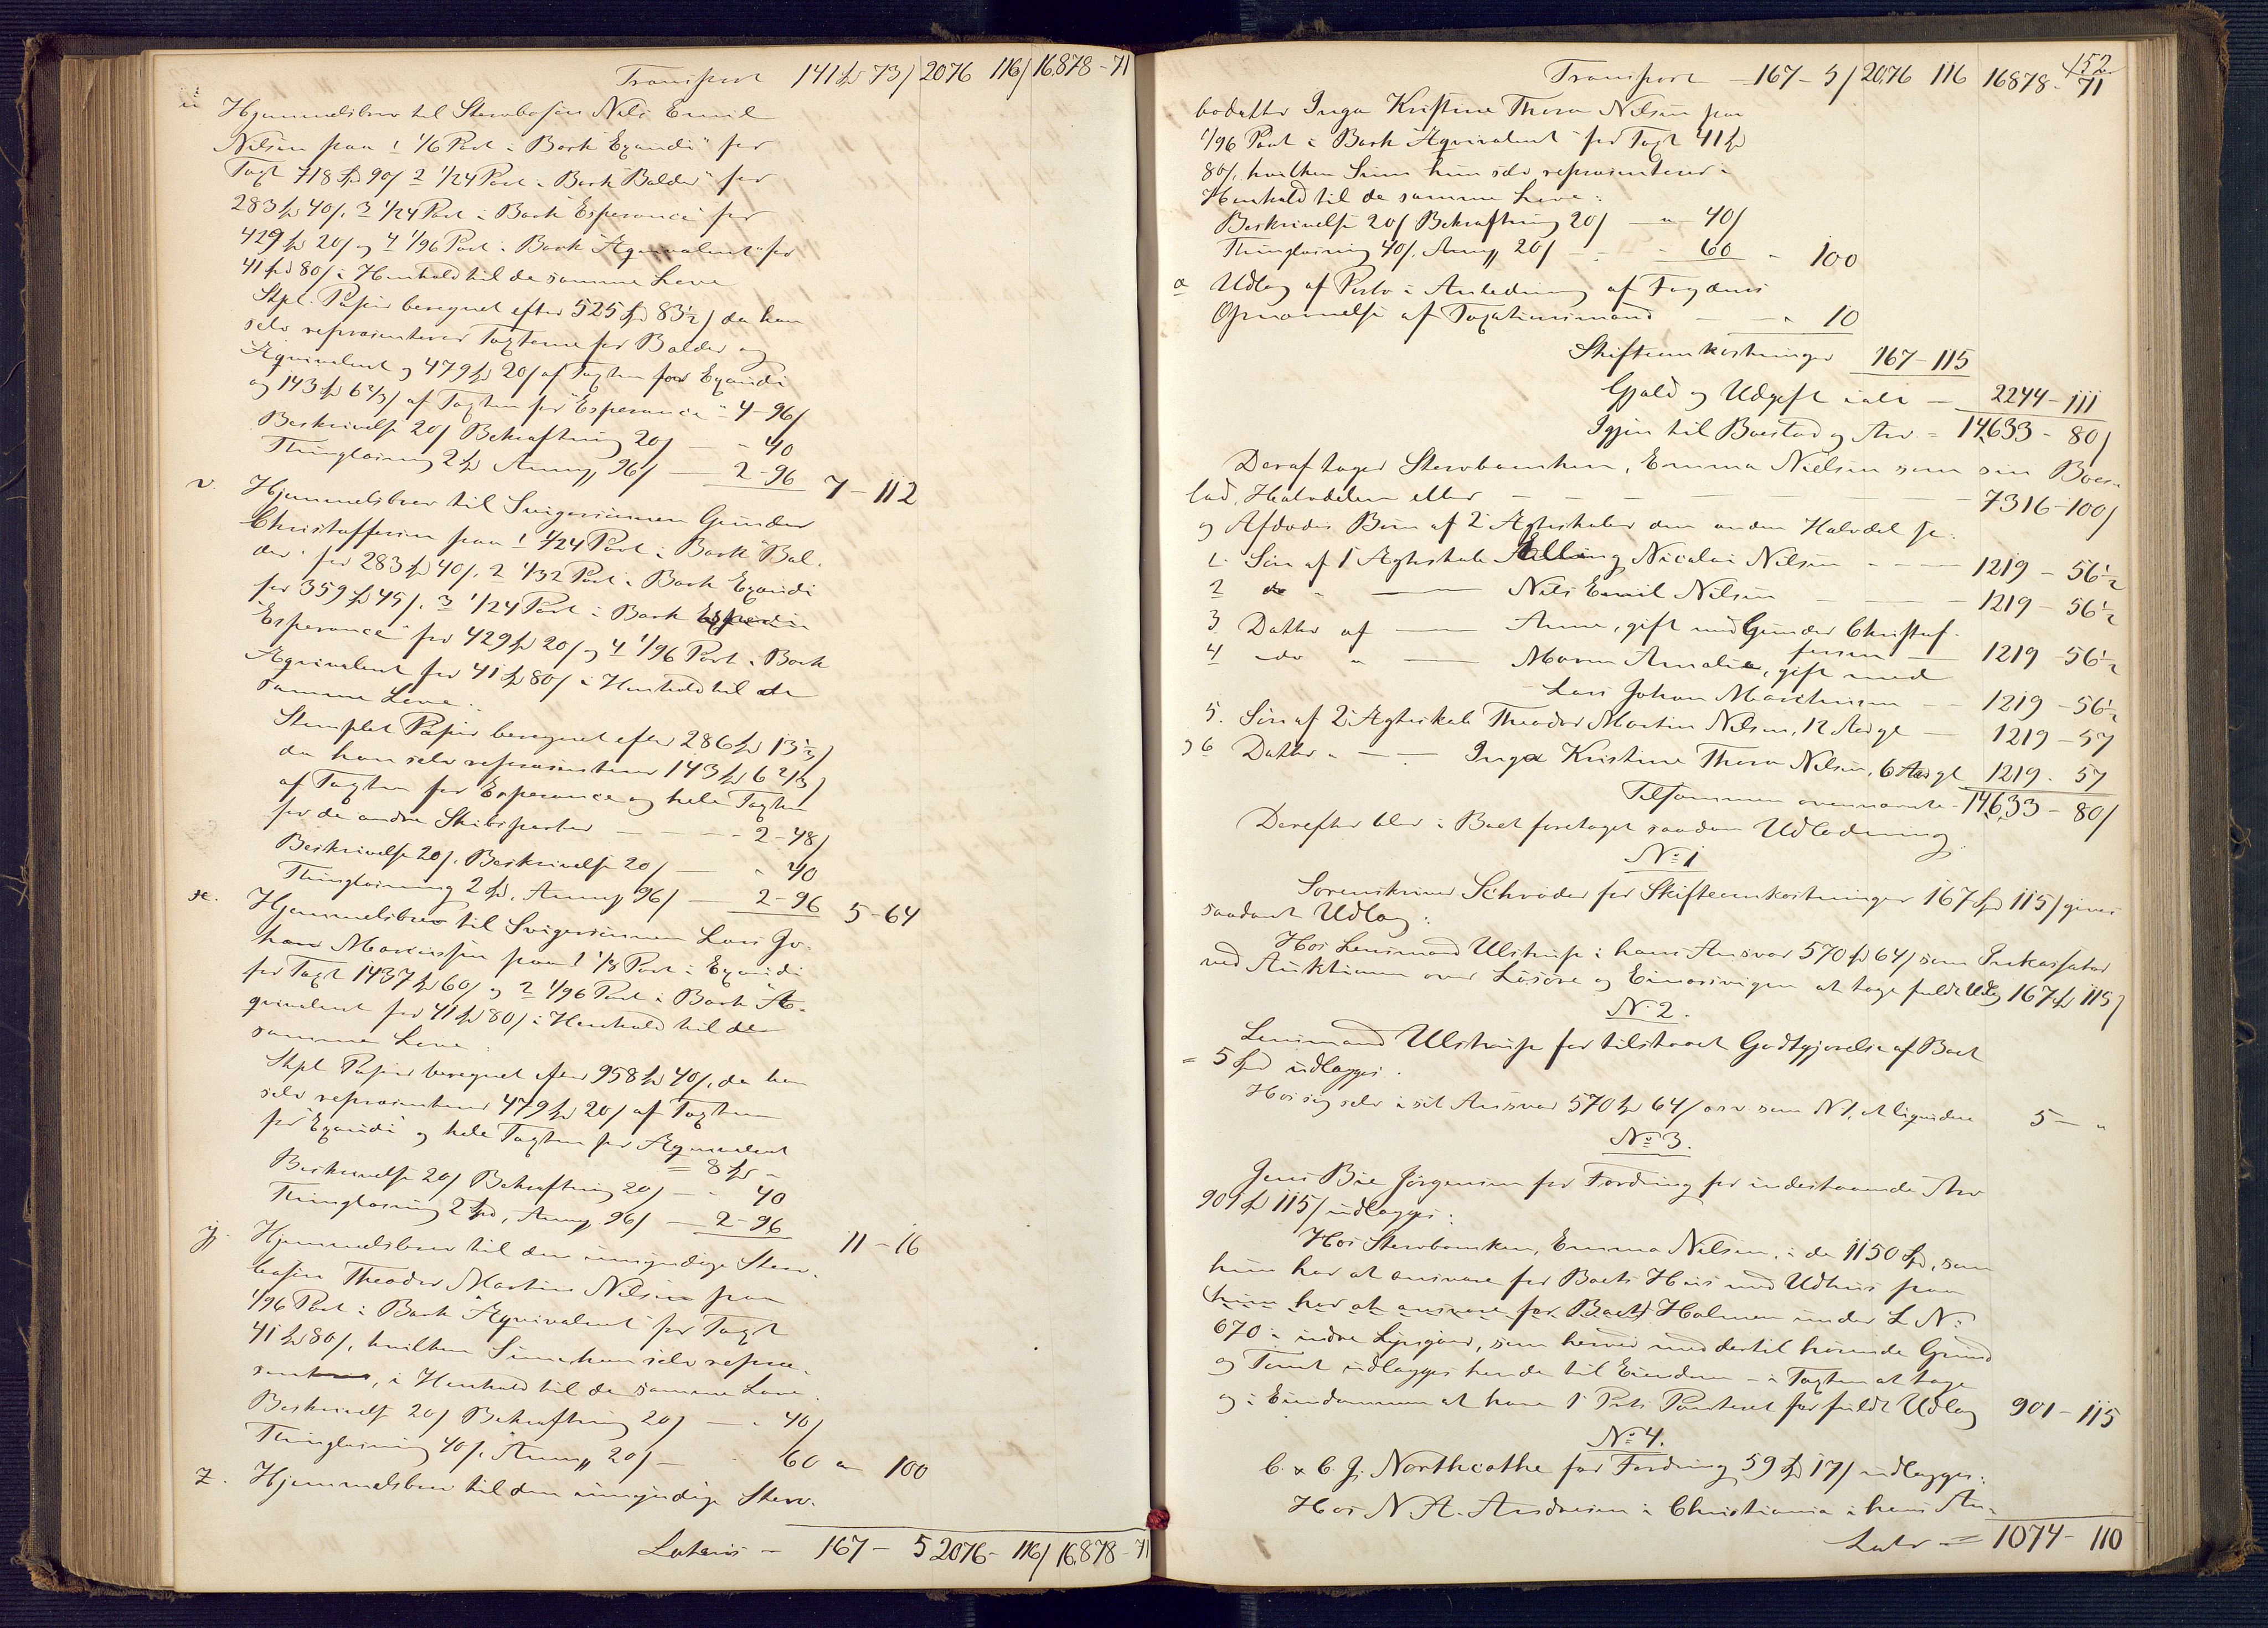 Transport 141 Spd 73 / 2076 116 / 16,878 - 71
u Hjemmelsbrev til Stervbosøn Nils Emil
Nilsen paa 1 1/6 Part i Bark "Exaudi" for
Taxt 718 Spd 90 / 2 1/24 Part i Bark "Balder" for
283 Spd 40 /. 3 1/24 Part i Bark "Esperance" for
429 Spd 20 / og 4 1/96 Part i Bark "Æqvivalent" for
41 Spd 80 / i Henhold til de samme Love
Stpl. Papir beregnet efter 525 Spd 83½ / da han
selv repræsenterer Taxterne for Balder og
Æqvivalent og 479 Spd 20 / af Taxten for Exaudi
og 143 Spd 6 2/3 / af Taxten for "Esperance" - 4 - 96 /
Beskrivelse 20 / Bekræftning 20 / — " 40
Thinglæsning 2 Spd Anmg 96 / — 2 - 96 7 - 112
v. Hjemmelsbrev til Svigersønnen Gunder
Christoffersen paa 1 1/24 Part i Bark "Bal-
der" for 283 Spd 40 /. 2 1/32 Part i Bark Exaudi
for 359 Spd 45 /. 3 1/24 Part i Bark
"Esperance" for 429 Spd 20 / og 4 1/96 Part i Bark
Æqvivalent for 41 Spd 80 / i Henhold til de
samme Love:
Stemplet Papir beregnet efter 286 Spd 13½ /
da han selv repræsenterer 143 Spd 6 2/3 /
af Taxten for Esperance og hele Taxten
for de andre Skibsparter — 2 - 48 /
Beskrivelse 20 /. Beskrivelse 20 / — " 40
Thinglæsning 2 Spd. Anmg 96 / — 2 - 96 5 - 64
x. Hjemmelsbrev til Svigersønnen Lars Jo-
han Marcussen paa 1 1/3 Part i Exaudi
for Taxt 1437 Spd 60 / og 2 1/96 Part i Bark Æ-
qvivalent for 41 Spd 80 / i Henhold til de
samme Love:
Stpl Papir beregnet efter 958 Spd 40 /, da han
selv repræsenterer 479 Spd 20 / af Taxten
for "Exaudi" og hele Taxten for Æqvivalent
= 8 Spd "
Beskrivelse 20 / Bekræftning 20 / — " 40
Thinglæsning 2 Spd, Anmg 96 / — 2 - 96 11 - 16
y. Hjemmelsbrev til den umyndige Sterv-
bosøn Theodor Martin Nilsen paa
1/96 Part i Bark "Æqvivalent" for Taxt
41 Spd 80 /, hvilken Sum han selv repræ-
senterer, i Henhold til de samme Love.
Beskrivelse 20 / Bekræftning 20 / — " 40 /
Thinglæsning 40 /. Anmg 20 / — 60 " 100
z. Hjemmelsbrev til den umyndige Sterv-
Lateris — 167 - 5 2076 - 116 / 16,878 - 71
152
Transport — 167 - 5 / 2076 116 16878 - 71
bodatter Inga Kristine Thora Nilsen paa
1/96 Part i Bark "Æqvivalent" for Taxt 41 Spd
80 /, hvilken Sum hun selv repræsenterer i
Henhold til de samme Love:
Beskrivelse 20 / Bekræftning 20 / — " 40 /
Thinglæsning 40 /. Anmg 20 / — 60 " 100
æ Udlæg af Porto i Anledning af Fogdens
Opnævnelse af Taxationsmænd — " 10
Skifteomkostninger 167 - 115
Gjæld og Udgift ialt — 2244 - 111
Igjen til Boeslod og Arv = 14,633 - 80 /
Deraf tager Stervboenken, Emma Nielsen som sin Boes-
lod, Halvdelen eller — 7316 - 100 /
og Afdødes Børn af 2 Ægteskaber den anden Halvdel je:
1. Søn af 1 Ægteskab Elling Nicolai Nilsen — 1219 - 56½
2 do " — Nils Emil Nilsen — 1219 - 56½
3 Datter af — Anne, gift med Gunder Christof-
fersen — 1219 - 56½
4 do " — Maren Amalia, gift med
Lars Johan Marcussen — 1219 - 56½
5. Søn af 2 Ægteskab Theodor Martin Nilsen, 12 Aar gl — 1219 - 57
og 6 Datter " — Inga Kristine Thora Nilsen, 6 Aar gl 1219 - 57
Tilsammen ovennævnte 14,633 - 80 /
Derefter blev i Boet foretaget saadan Udlodning
No 1
Sorenskriver Schrøder for Skifteomkostninger 167 Spd 115 / gives
saadant Udlæg:
Hos Lensmand Ulstrup i hans Ansvar 570 Spd 64 / som Inkassator
ved Auktionen over Løsøre og Eneosvigen at tage fuldt Udlæg 167 Spd 115 /
No 2.
Lensmand Ulstrup for tilstaaet Godtgjørelse af Boet
= 5 Spd udlægges.
Hos sig selv i sit Ansvar 570 Spd 64 / osv som N 1, at liqvidere 5 - "
No 3.
Jens Bie Jørgensen for Fordring for indestaaende Arv
901 Spd 115 / udlægges:
Hos Stervboenken, Emma Nilsen, i de 1150 Spd, som
hun har at ansvare for Boets Hus med Udhus paa
hun har at ansvare for Boets Holmen under L No
670 i indre Lyngør, som herved med dertil hørende Grund
og Tomt udlægges hende til Eiendom — i Taxten at tage
og i Eiendommen at have 1 Prts Panteret for fuldt Udlæg 901 - 115
No 4.
C. & C. J. Northcothe for Fordring 59 Spd 17 / udlægges:
Hos N. A. Andresen i Christiania i hans An-
Latr = 1074 - 110